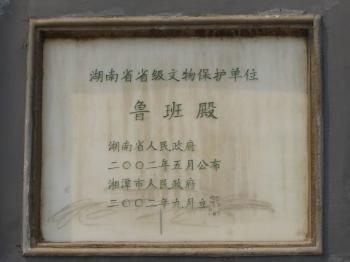 湖南省省级文物保护单位
鲁班殿
湖南省人民政府
二〇〇二年五月公布
湘潭市人民政府
二〇〇二年九月立